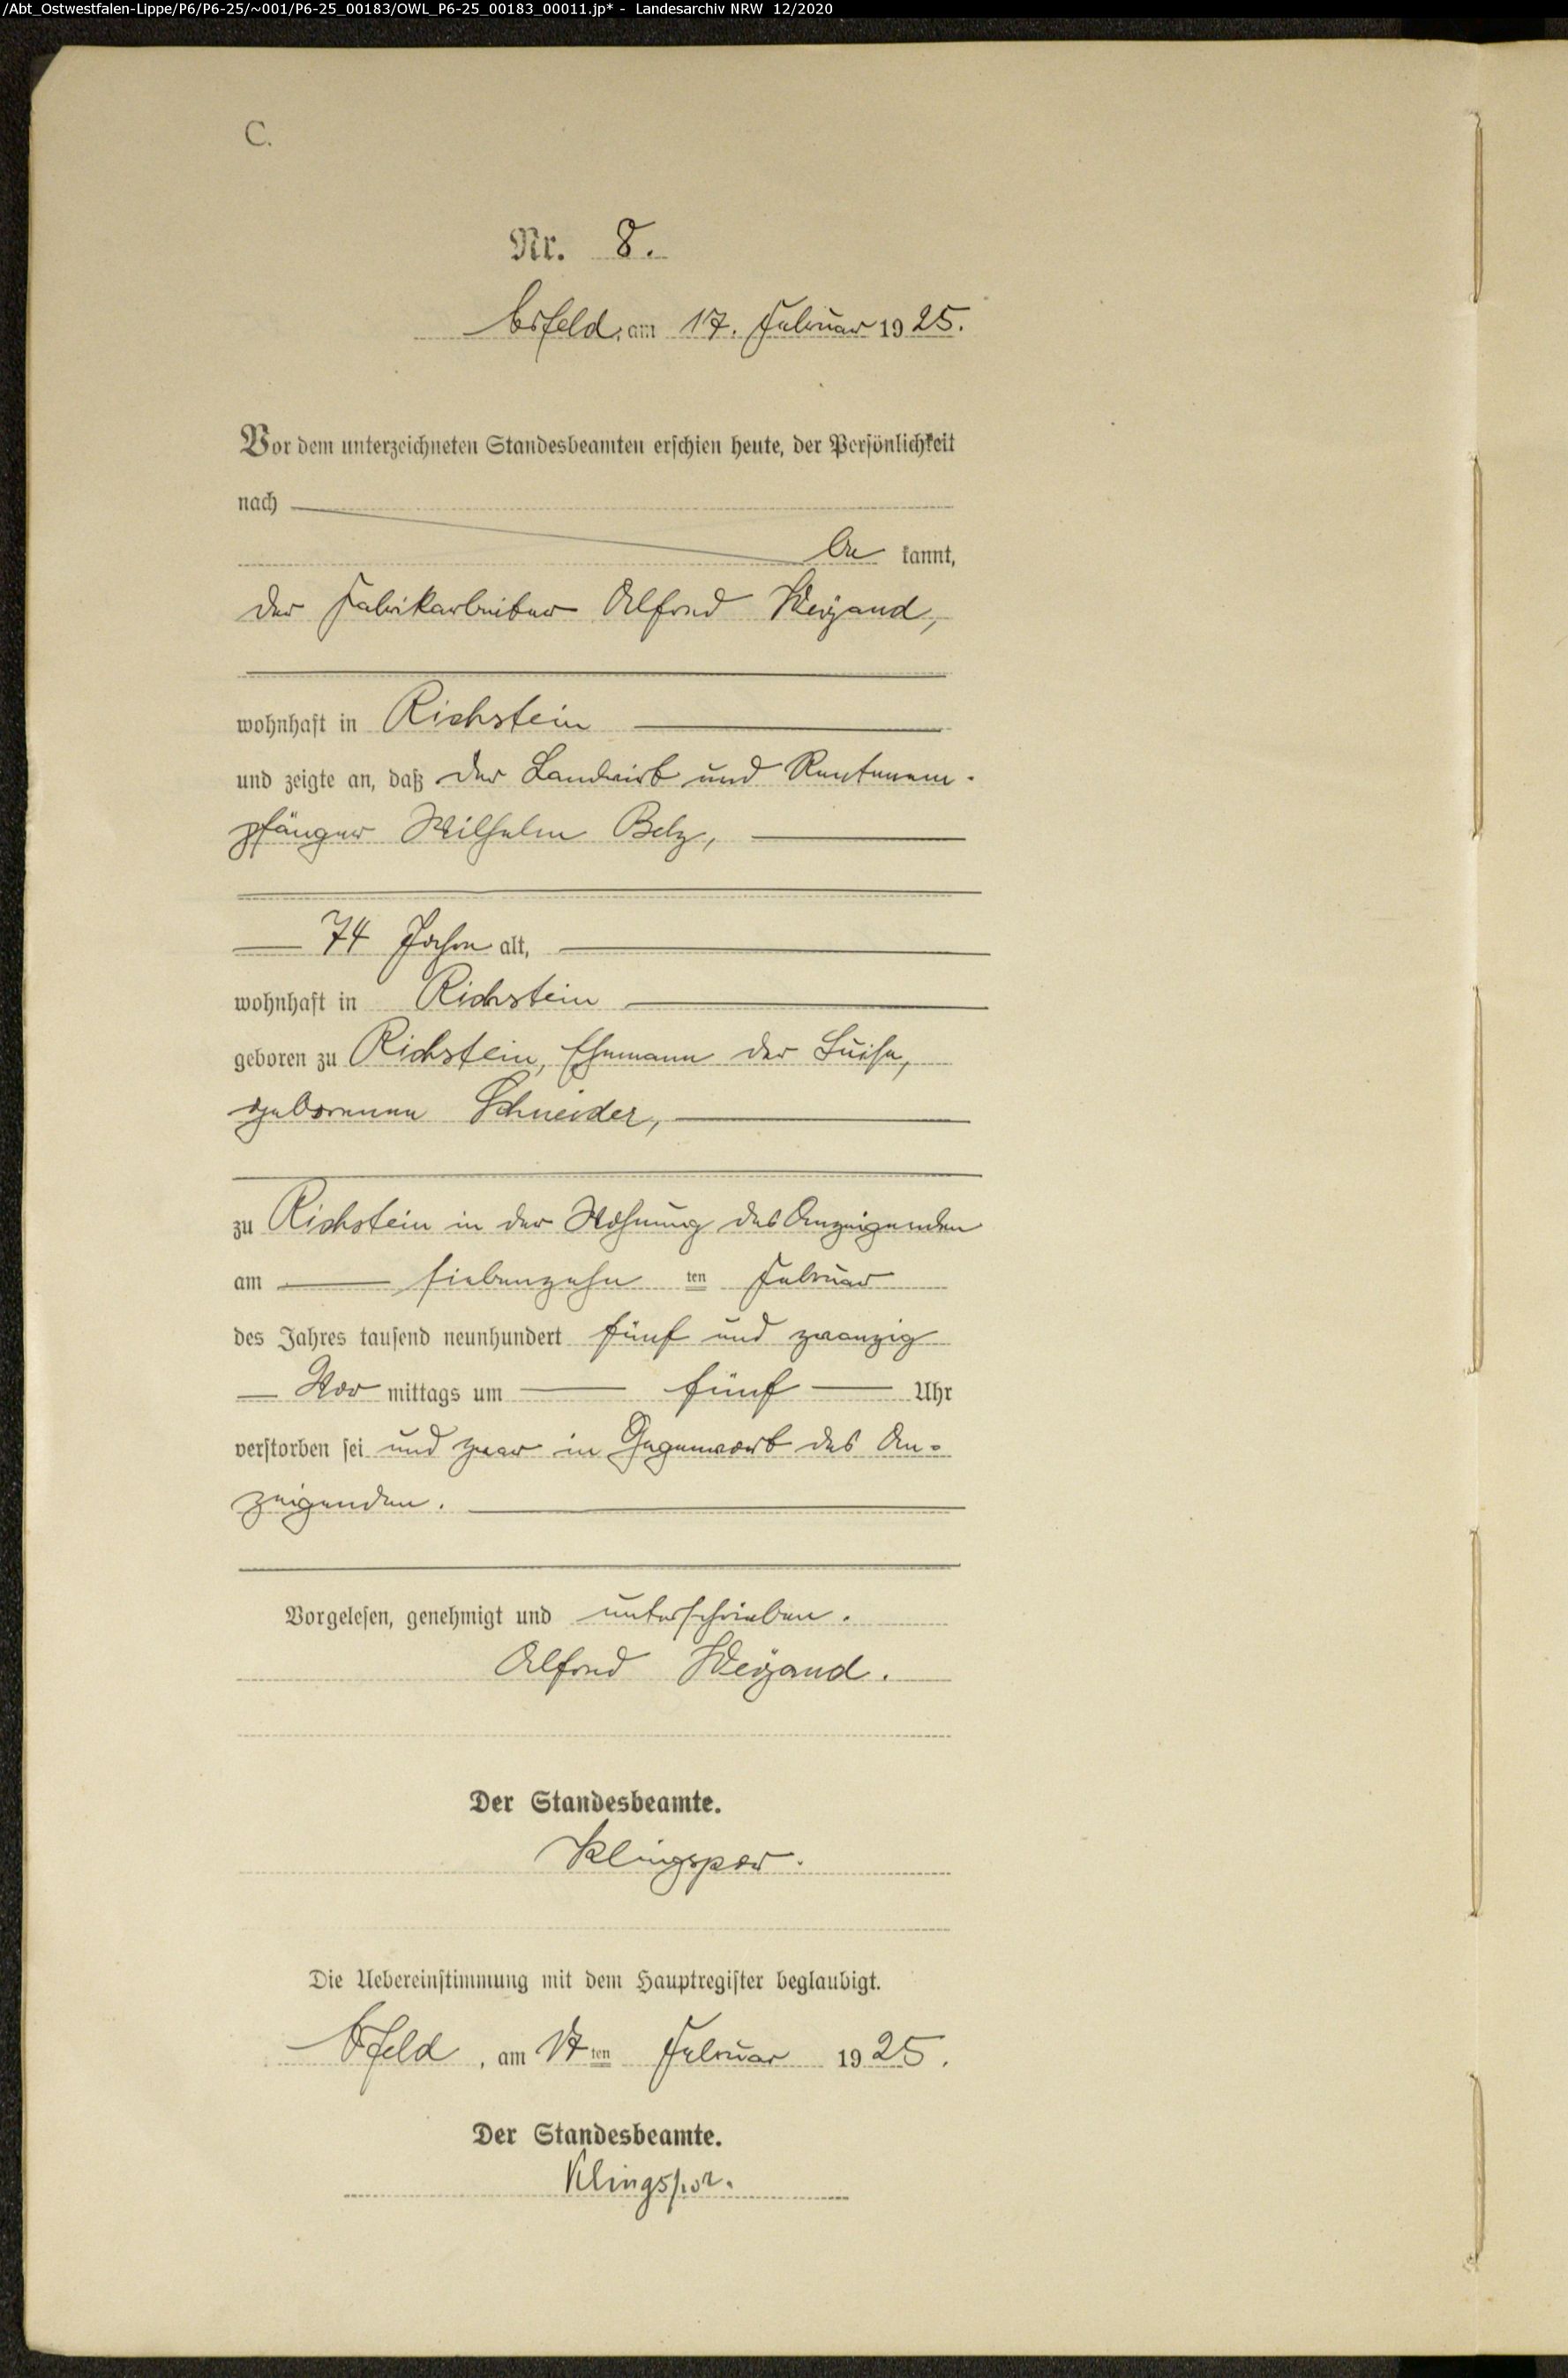 /Abt_Ostwestfalen-Lippe/P6/P6-25/~001/P6-25_00183/OWL_P6-25_00183_00011.jp* - Landesarchiv NRW 12/2020
C.
Nr. 8.
am 17. Februar 1925.
Vor dem unterzeichneten Standesbeamten erschien heute, der Persönlichkeit
nach
be kannt,
der Fabrikarbeiter Alfred Weigand,
wohnhaft in Richstein
und zeigte an, daß der Landwirt und Rentenem-
pfänger Wilhelm Belz,
74 Jahre alt,
wohnhaft in Richstein
geboren zu Richstein, Ehemann der Luise,
geborenen Schneider,
zu Richstein in der Wohnung des Anzeigenden
am siebenzehn ten Februar
des Jahres tausend neunhundert fünf und zwanzig
Vor mittags um fünf Uhr
verstorben sei und zwar in Gegenwart des An-
zeigenden.
Vorgelesen, genehmigt und unterschrieben.
Alfred Weigand.
Der Standesbeamte.
Klingspor.
Die Uebereinstimmung mit dem Hauptregister beglaubigt.
, am 17ten Februar 1925.
Der Standesbeamte.
Klingspor.